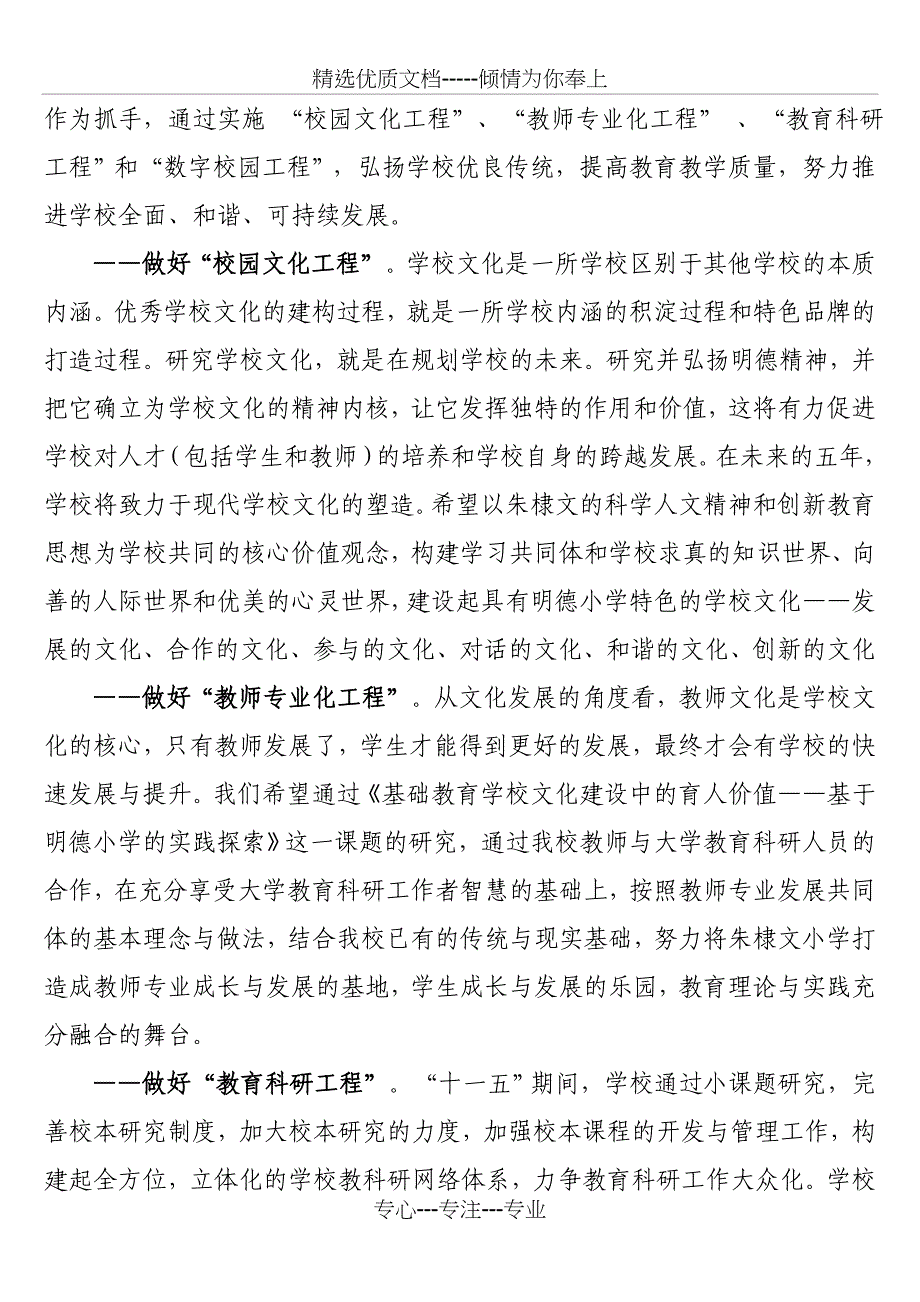 精选优质文档-----倾情为你奉上
作为抓手，通过实施 “校园文化工程”、“教师专业化工程” 、“教育科研
工程”和“数字校园工程”，弘扬学校优良传统，提高教育教学质量，努力推
进学校全面、和谐、可持续发展。
——做好“校园文化工程”。学校文化是一所学校区别于其他学校的本质
内涵。优秀学校文化的建构过程，就是一所学校内涵的积淀过程和特色品牌的
打造过程。研究学校文化，就是在规划学校的未来。研究并弘扬明德精神，并
把它确立为学校文化的精神内核，让它发挥独特的作用和价值，这将有力促进
学校对人才（包括学生和教师）的培养和学校自身的跨越发展。在未来的五年，
学校将致力于现代学校文化的塑造。希望以朱棣文的科学人文精神和创新教育
思想为学校共同的核心价值观念，构建学习共同体和学校求真的知识世界、向
善的人际世界和优美的心灵世界，建设起具有明德小学特色的学校文化——发
展的文化、合作的文化、参与的文化、对话的文化、和谐的文化、创新的文化
——做好“教师专业化工程” 。从文化发展的角度看，教师文化是学校文
化的核心，只有教师发展了，学生才能得到更好的发展，最终才会有学校的快
速发展与提升。我们希望通过《基础教育学校文化建设中的育人价值——基于
明德小学的实践探索》这一课题的研究，通过我校教师与大学教育科研人员的
合作，在充分享受大学教育科研工作者智慧的基础上，按照教师专业发展共同
体的基本理念与做法，结合我校已有的传统与现实基础，努力将朱棣文小学打
造成教师专业成长与发展的基地，学生成长与发展的乐园，教育理论与实践充
分融合的舞台。
——做好“教育科研工程”。“十一五”期间，学校通过小课题研究，完
善校本研究制度，加大校本研究的力度，加强校本课程的开发与管理工作，构
建起全方位，立体化的学校教科研网络体系，力争教育科研工作大众化。学校
专心---专注---专业